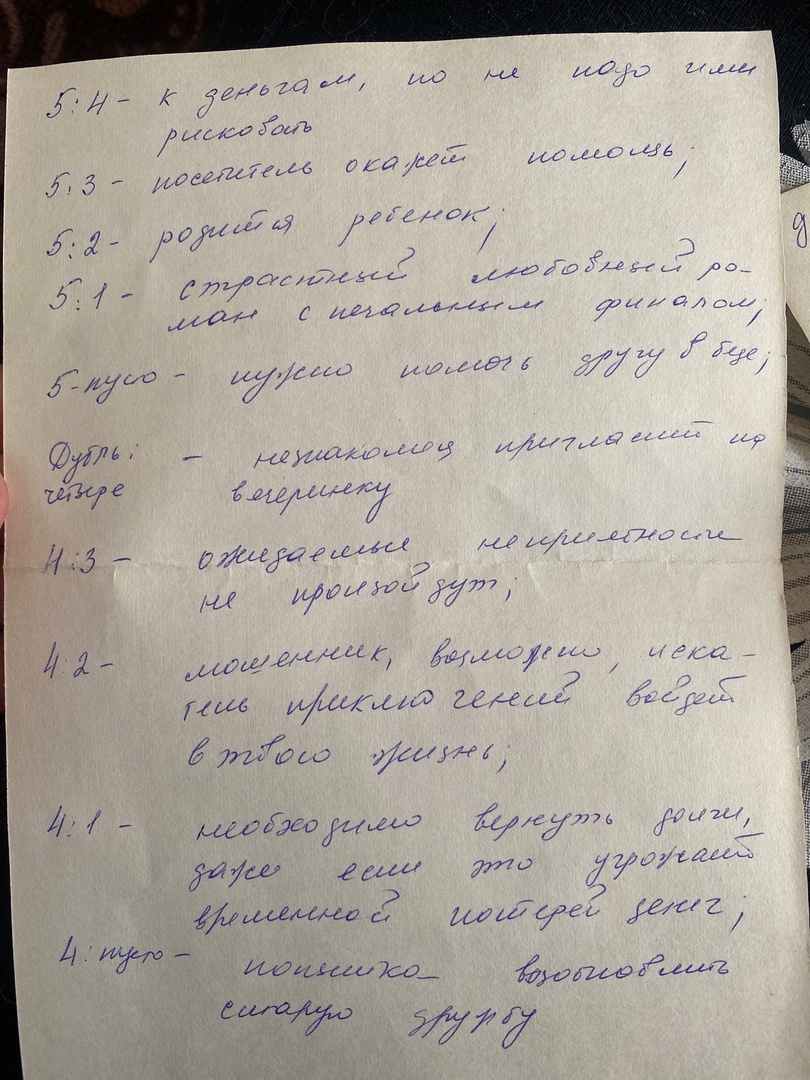 5:4 - к деньгам, но не надо ими
рисковать
5:3 - посетитель окажет помощь;
5:2 - родится ребенок;
5:1 - страстный любовный ро-
ман с печальным финалом;
5-пусто - нужно помочь другу в беде;
Дубль: - незнакомец пригласит на
четыре вечеринку
4:3 - ожидаемые неприятности
не произойдут;
4:2 - мошенник, возможно, иска-
тель приключений войдет
в твою жизнь;
4:1 - необходимо вернуть долги,
даже если это угрожает
временной потерей денег;
4:пусто - попытка возобновить
старую дружбу
д